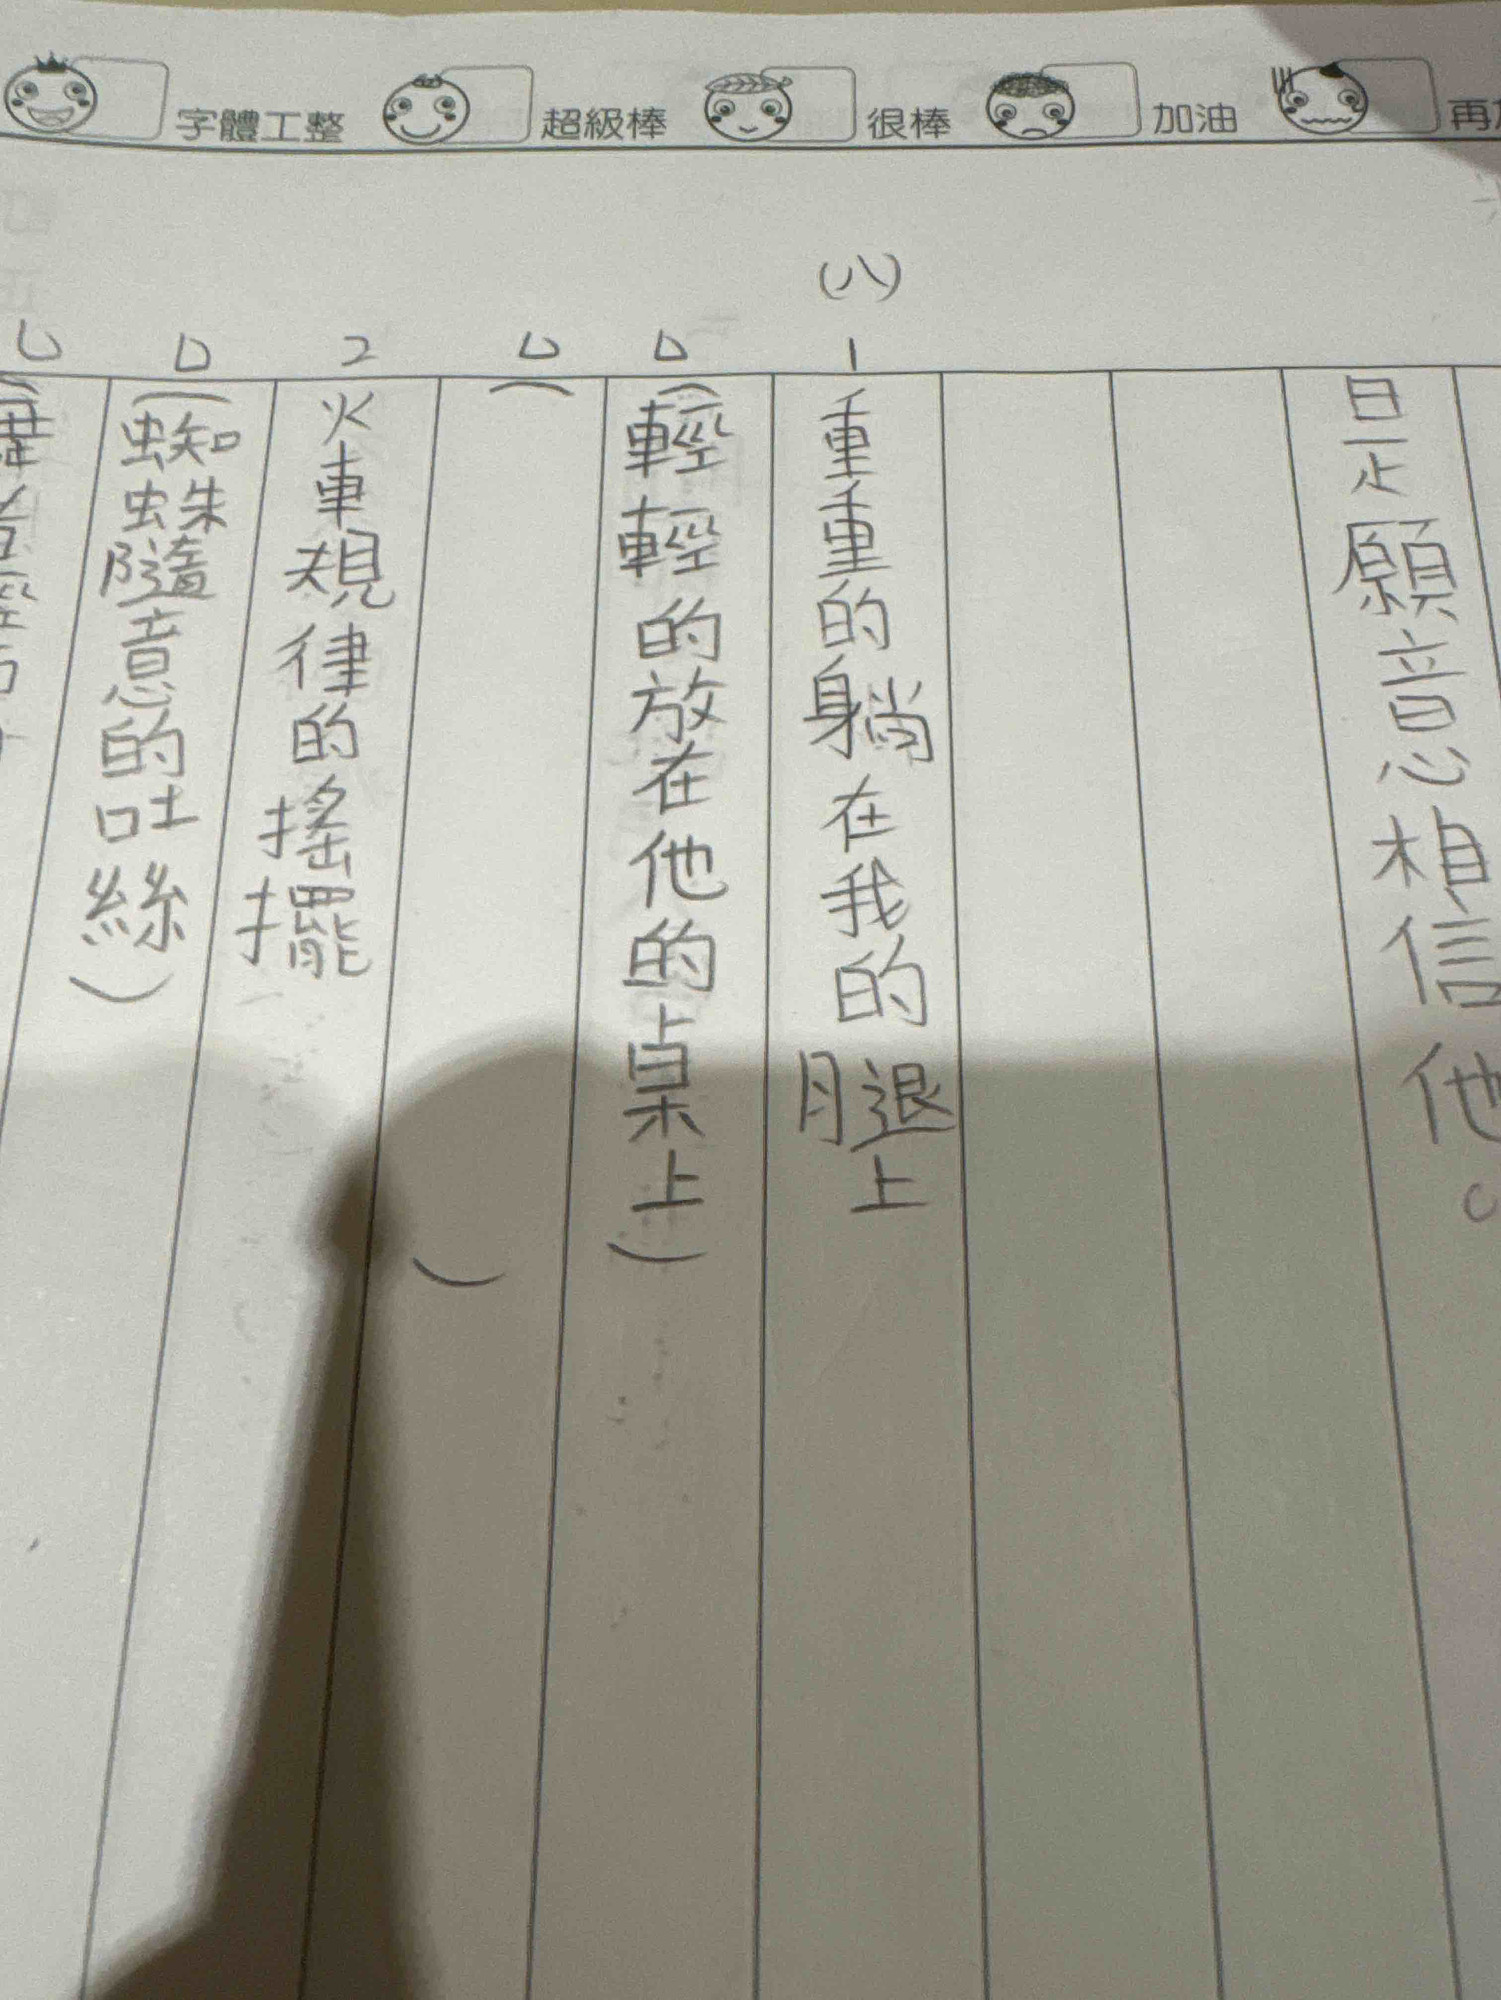 字體工整 超級棒 很棒 加油 再
是願意相信他。
(八)
1 重重的躺在我的腿上
(輕輕的放在他的桌上)
( )
2 火車規律的搖擺
(蜘蛛隨意的吐絲)